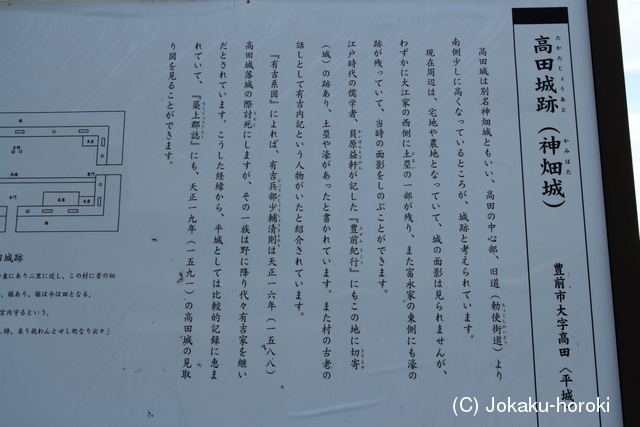 たかたじょうあと
かみはた
高田城跡（神畑城）
豊前市大字高田〈平城
高田城は別名神畑城ともいい、高田の中心部、旧道（勅使街道）より
ちょくしかいどう
南側少しに高くなっているところが、城跡と考えられています。
現在周辺は、宅地や農地となっていて、城の面影は見られませんが、
わずかに大江家の西側に土塁の一部が残り、また富永家の東側にも濠の
跡が残っていて、当時の面影をしのぶことができます。
江戸時代の儒学者、貝原益軒が記した『豊前紀行』にもこの地に切寄
（城）の跡あり、土塁や濠があったと書かれています。また村の古老の
話しとして有吉内記という人物がいたと紹介されています。
『有吉系図』によれば、有吉兵部少輔清則は天正一六年（一五八八）
高田城落城の際討死にしますが、その一族は野に降り代々有吉家を継い
だとされています。こうした経緯から、平城としては比較的記録に恵ま
れていて、『築上郡誌』にも、天正一九年（一五九一）の高田城の見取
り図を見ることができます。
田城跡
東にあり二里に近し、この村に昔の切
、堀あり、堀は今は田となる。
宮内守るという。
時、乗り殺わんとせし処なり云々」
(C) Jokaku-horoki